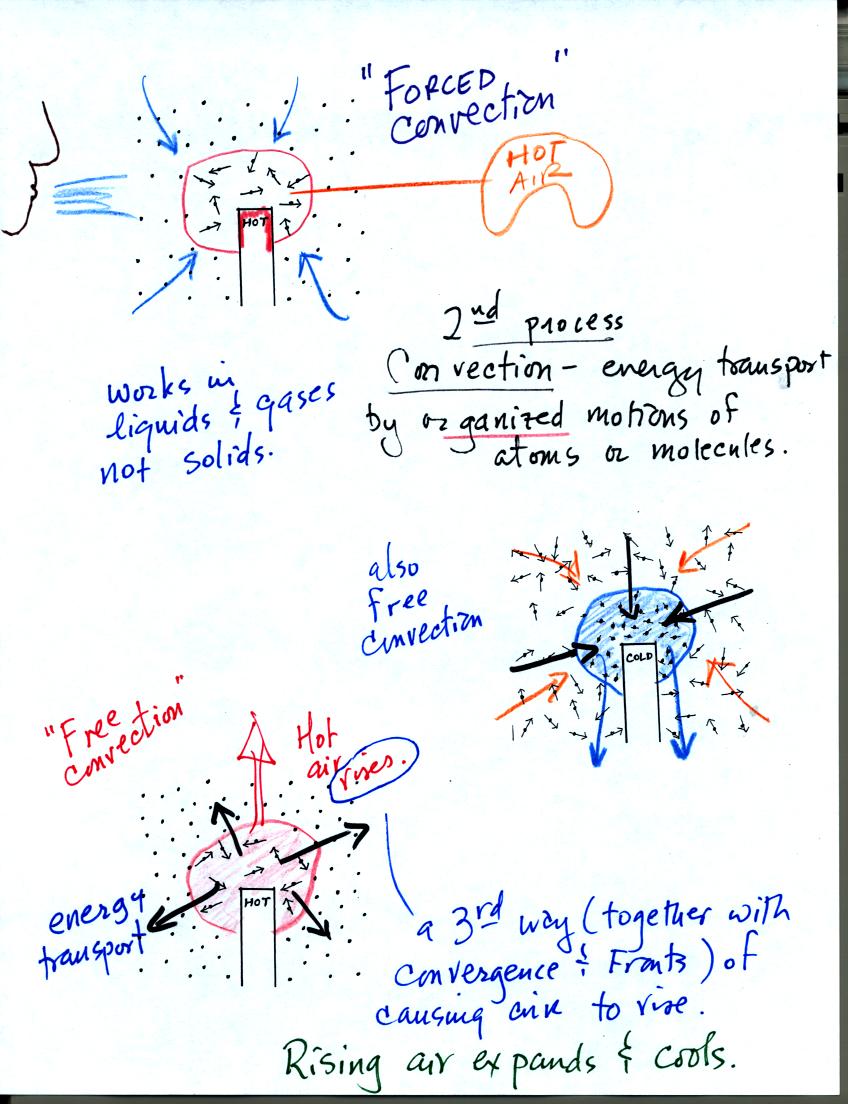 "FORCED
Convection"
HOT
AIR
HOT
2nd process
Convection - energy transport
by organized motions of
atoms or molecules.
works in
liquids & gases
not solids.
also
free
convection
COLD
"Free
convection"
Hot
air rises.
energy
transport
HOT
a 3rd way (together with
convergence & Fronts) of
causing air to rise.
Rising air expands & cools.